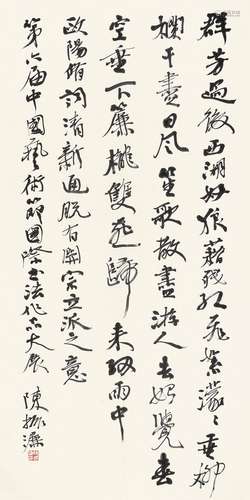 群芳過後西湖好狼藉殘紅飛絮濛濛垂柳
闌干盡日風笙歌散盡游人去始覺春
空垂下簾櫳雙燕歸来細雨中
歐陽脩詞清新通脱有開宗立派之意
第六届中國藝術節國際書法作品大展 陳振濂